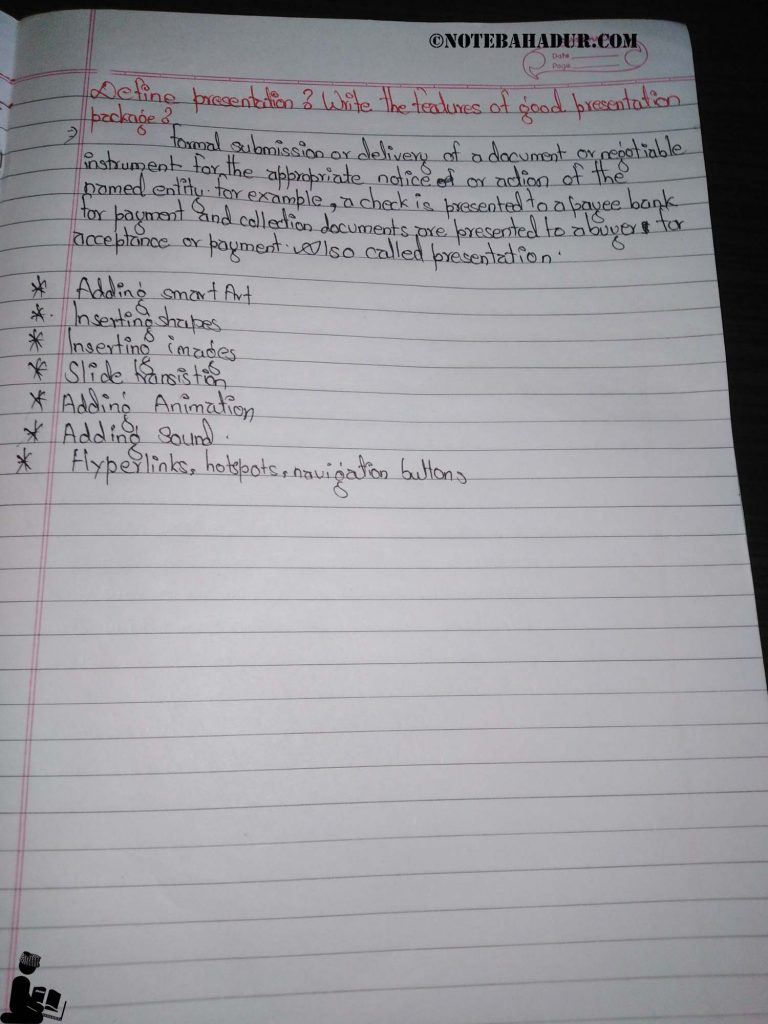 ©NOTEBAHADUR.COM
Date
Page
Define presentation? Write the features of good presentation
package?
→ formal submission or delivery of a document or negotiable
instrument for the appropriate notice of or action of the
named entity. for example, a check is presented to a payee bank
for payment and collection documents are presented to a buyer for
acceptance or payment. Also called presentation.
* Adding smart Art
*. Inserting shapes
* Inserting images
* Slide transistion
* Adding Animation
* Adding Sound.
* Hyperlinks, hotspots, navigation buttons